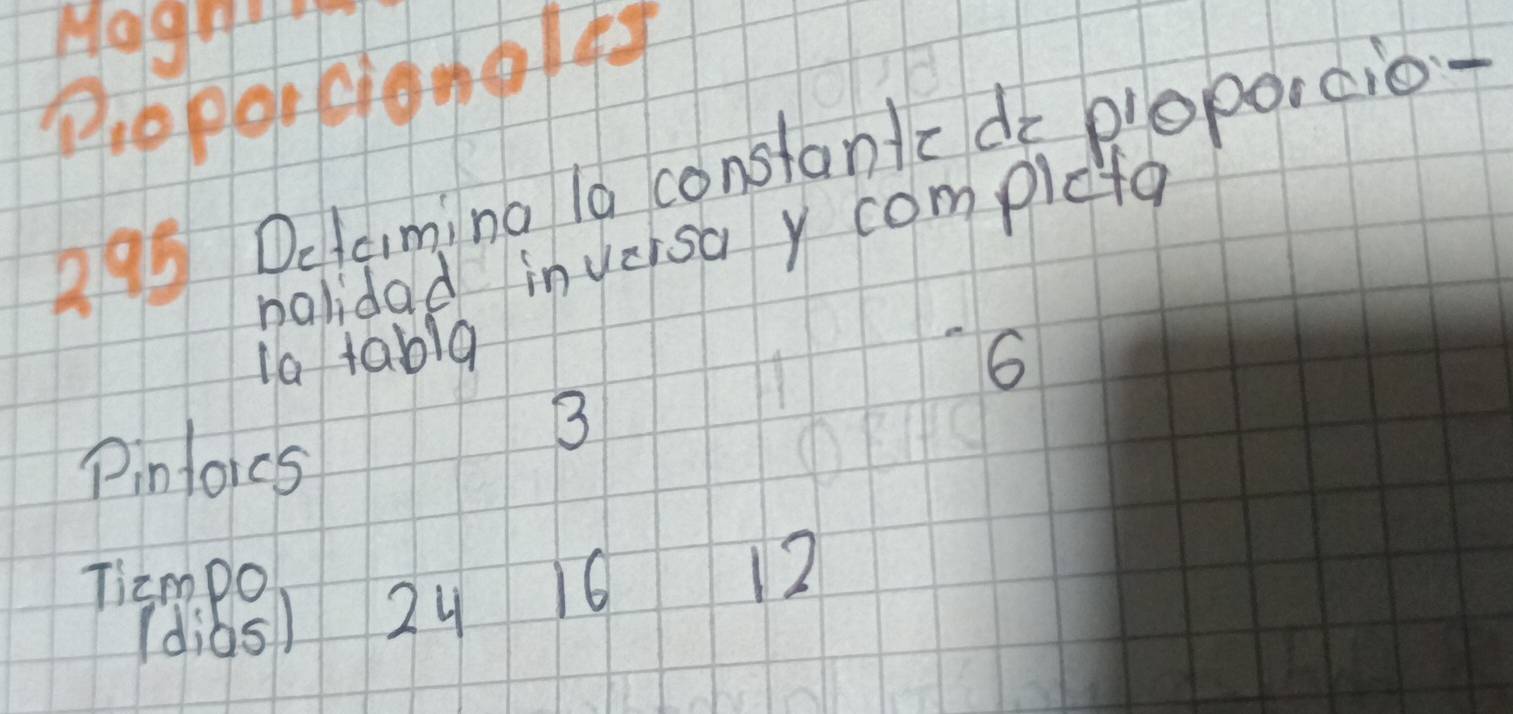 Proporcionales
295 Determina la constante de proporcio-
nalidad inversa y completa
la tabla
Pintores 3 6
Tiempo
(dias) 24 16 12